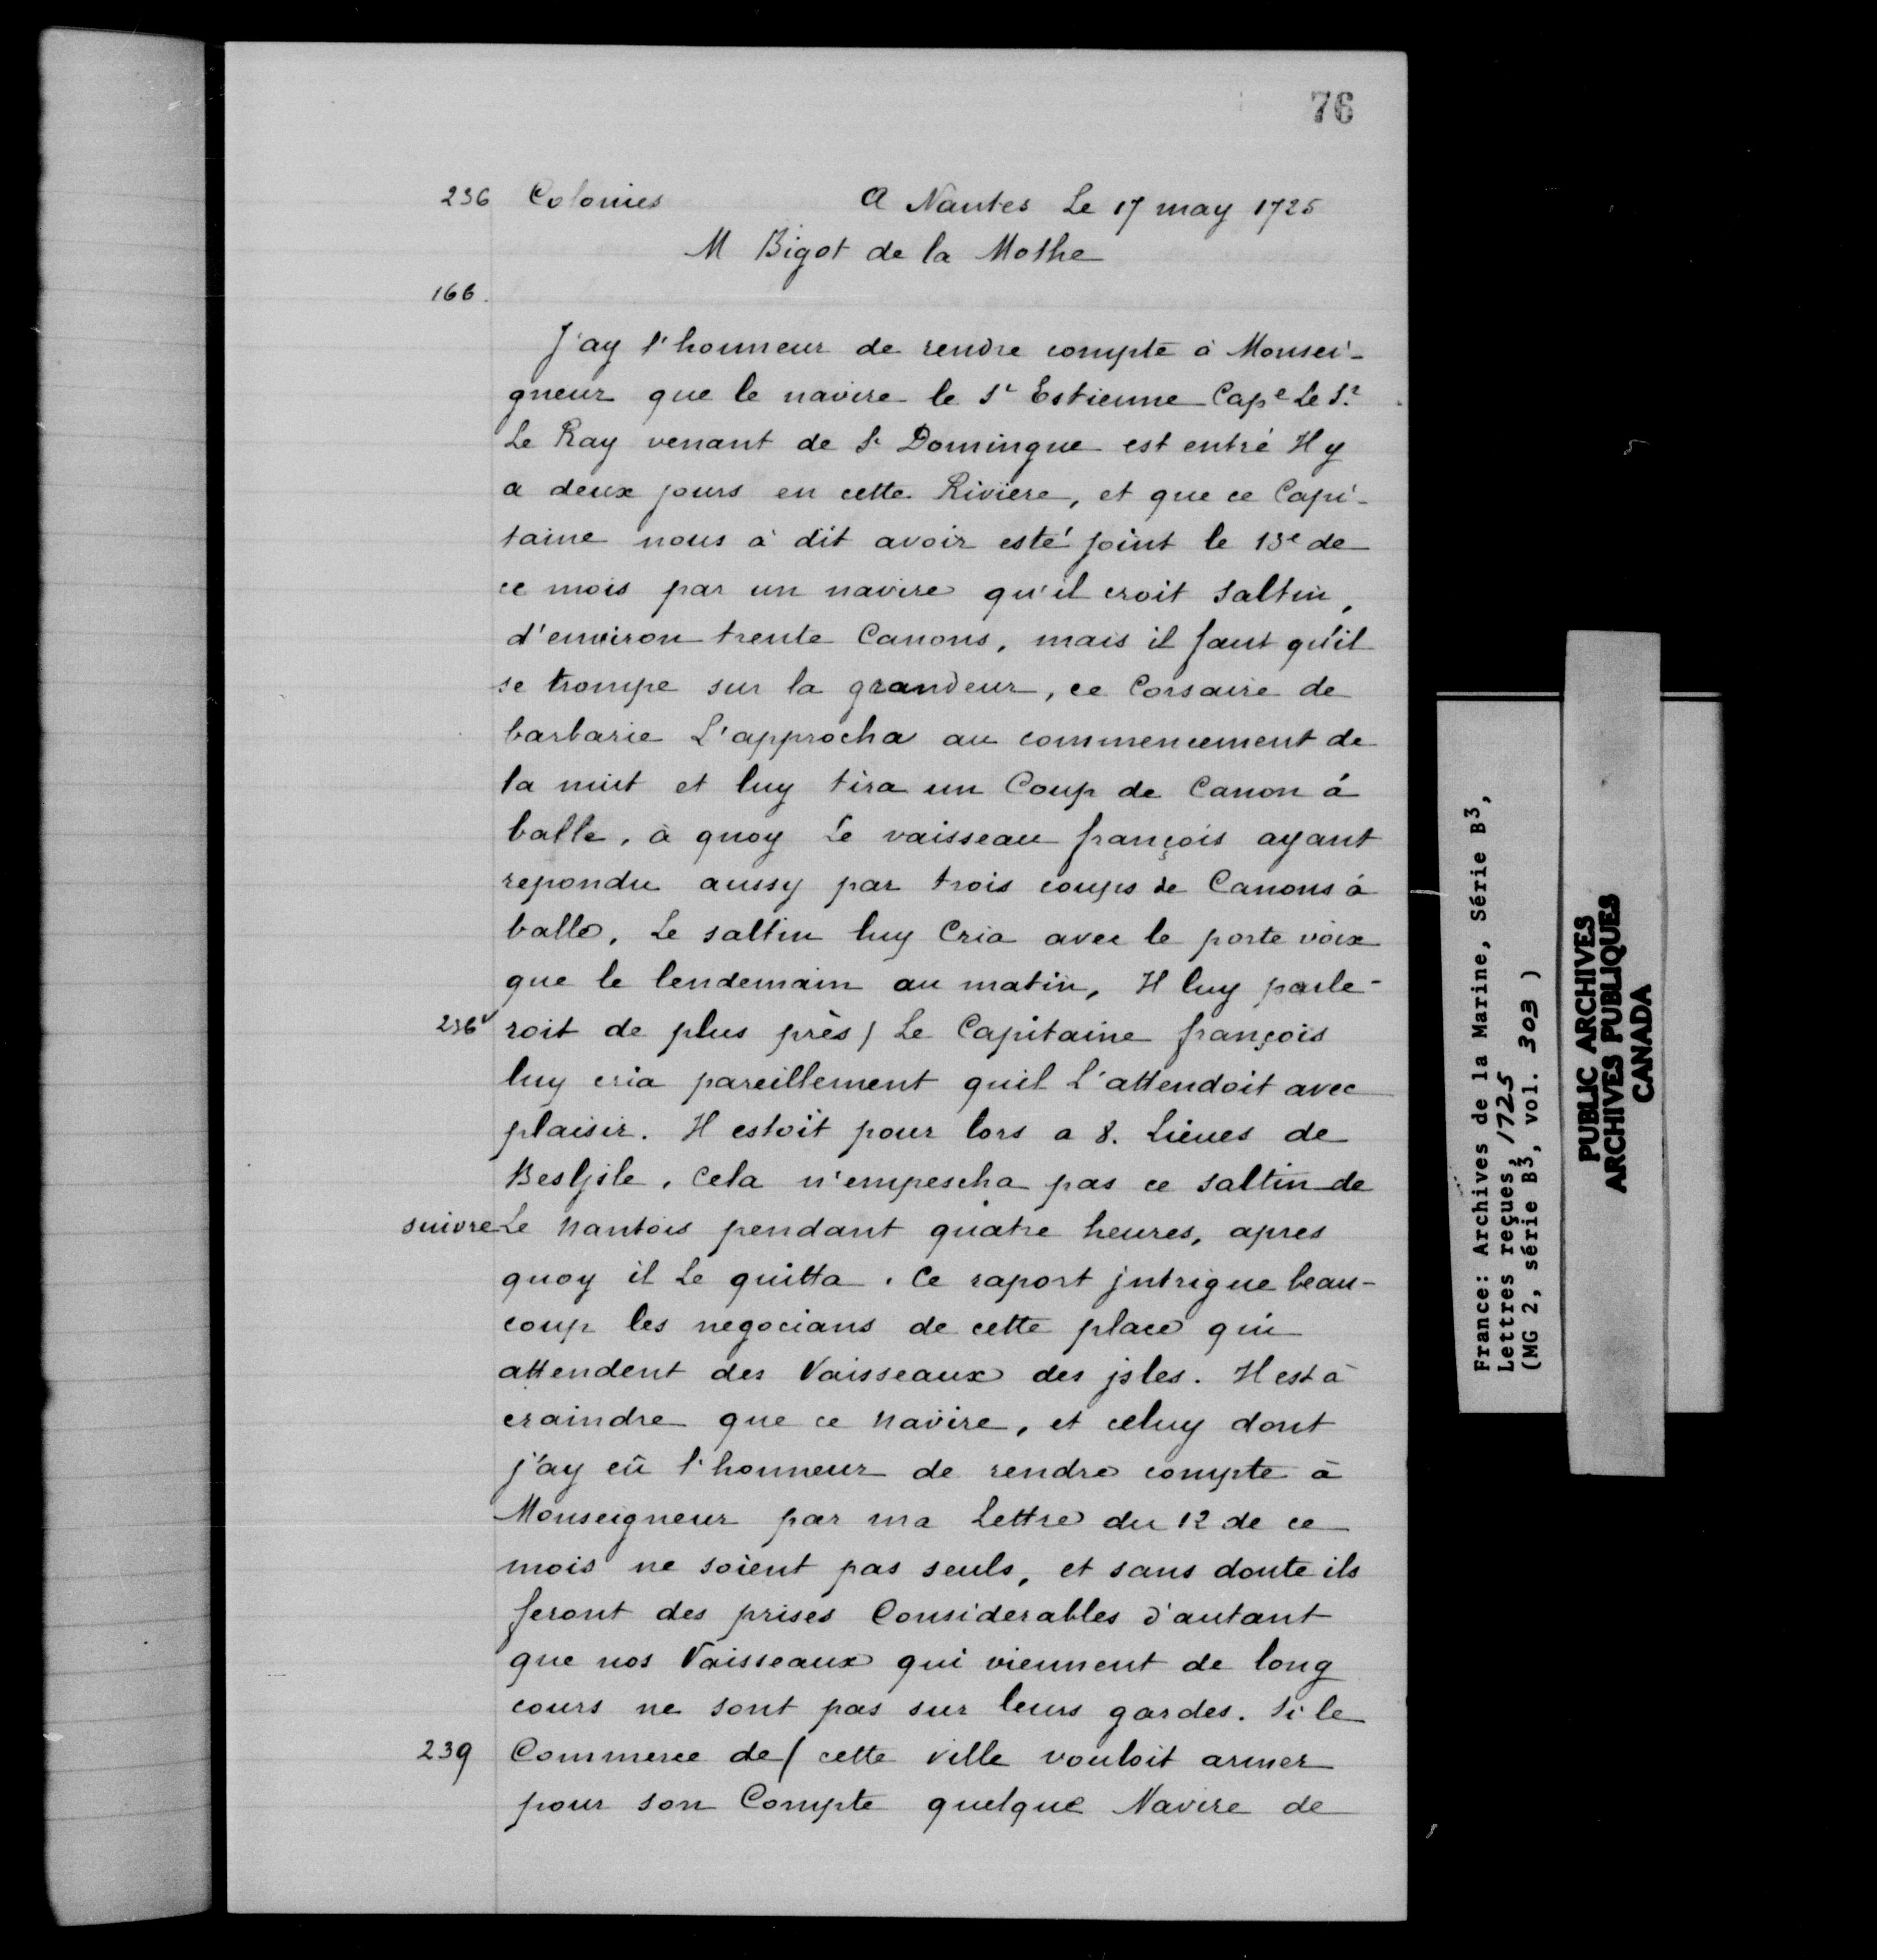 76
236 Colonies A Nantes Le 17 may 1725
M Bigot de la Mothe
166.
J'ay l'honneur de rendre compte à Monsei-
gneur que le navire le St Estienne Cape Le Sr
Le Ray venant de St Domingue est entré Il y
a deux jours en cette Riviere, et que ce Capi-
taine nous à dit avoir esté joint le 13e de
ce mois par un navire qu'il croit Saltin,
d'environ trente Canons, mais il faut qu'il
se trompe sur la grandeur, ce Corsaire de
barbarie L'approcha au commencement de
la nuit et luy tira un Coup de Canon à
balle, à quoy Le vaisseau françois ayant
repondu aussy par trois coups de Canons à
balle, Le saltin luy Cria avec le porte voix
que le lendemain au matin, Il luy parle-
236v roit de plus près/ Le Capitaine françois
luy cria pareillement quil L'attendoit avec
plaisir. Il estoit pour lors a 8. Lieues de
Besljsle, Cela n'empescha pas ce saltin de
suivre Le nantois pendant quatre heures, apres
quoy il Le quitta. Ce raport jntrigue beau-
coup les negocians de cette place qui
attendent des Vaisseaux des jsles. Il est à
craindre que ce navire, et celuy dont
j'ay eû l'honneur de rendre compte à
Monseigneur par ma Lettre du 12 de ce
mois ne soient pas seuls, et sans doute ils
feront des prises Considerables d'autant
que nos Vaisseaux qui viennent de long
cours ne sont pas sur leurs gardes. Si le
239 Commerce de/ cette ville vouloit armer
pour son Compte quelque Navire de
France: Archives de la Marine, Série B3,
Lettres reçues, 1725
(MG 2, série B3, vol. 303 )
PUBLIC ARCHIVES
ARCHIVES PUBLIQUES
CANADA